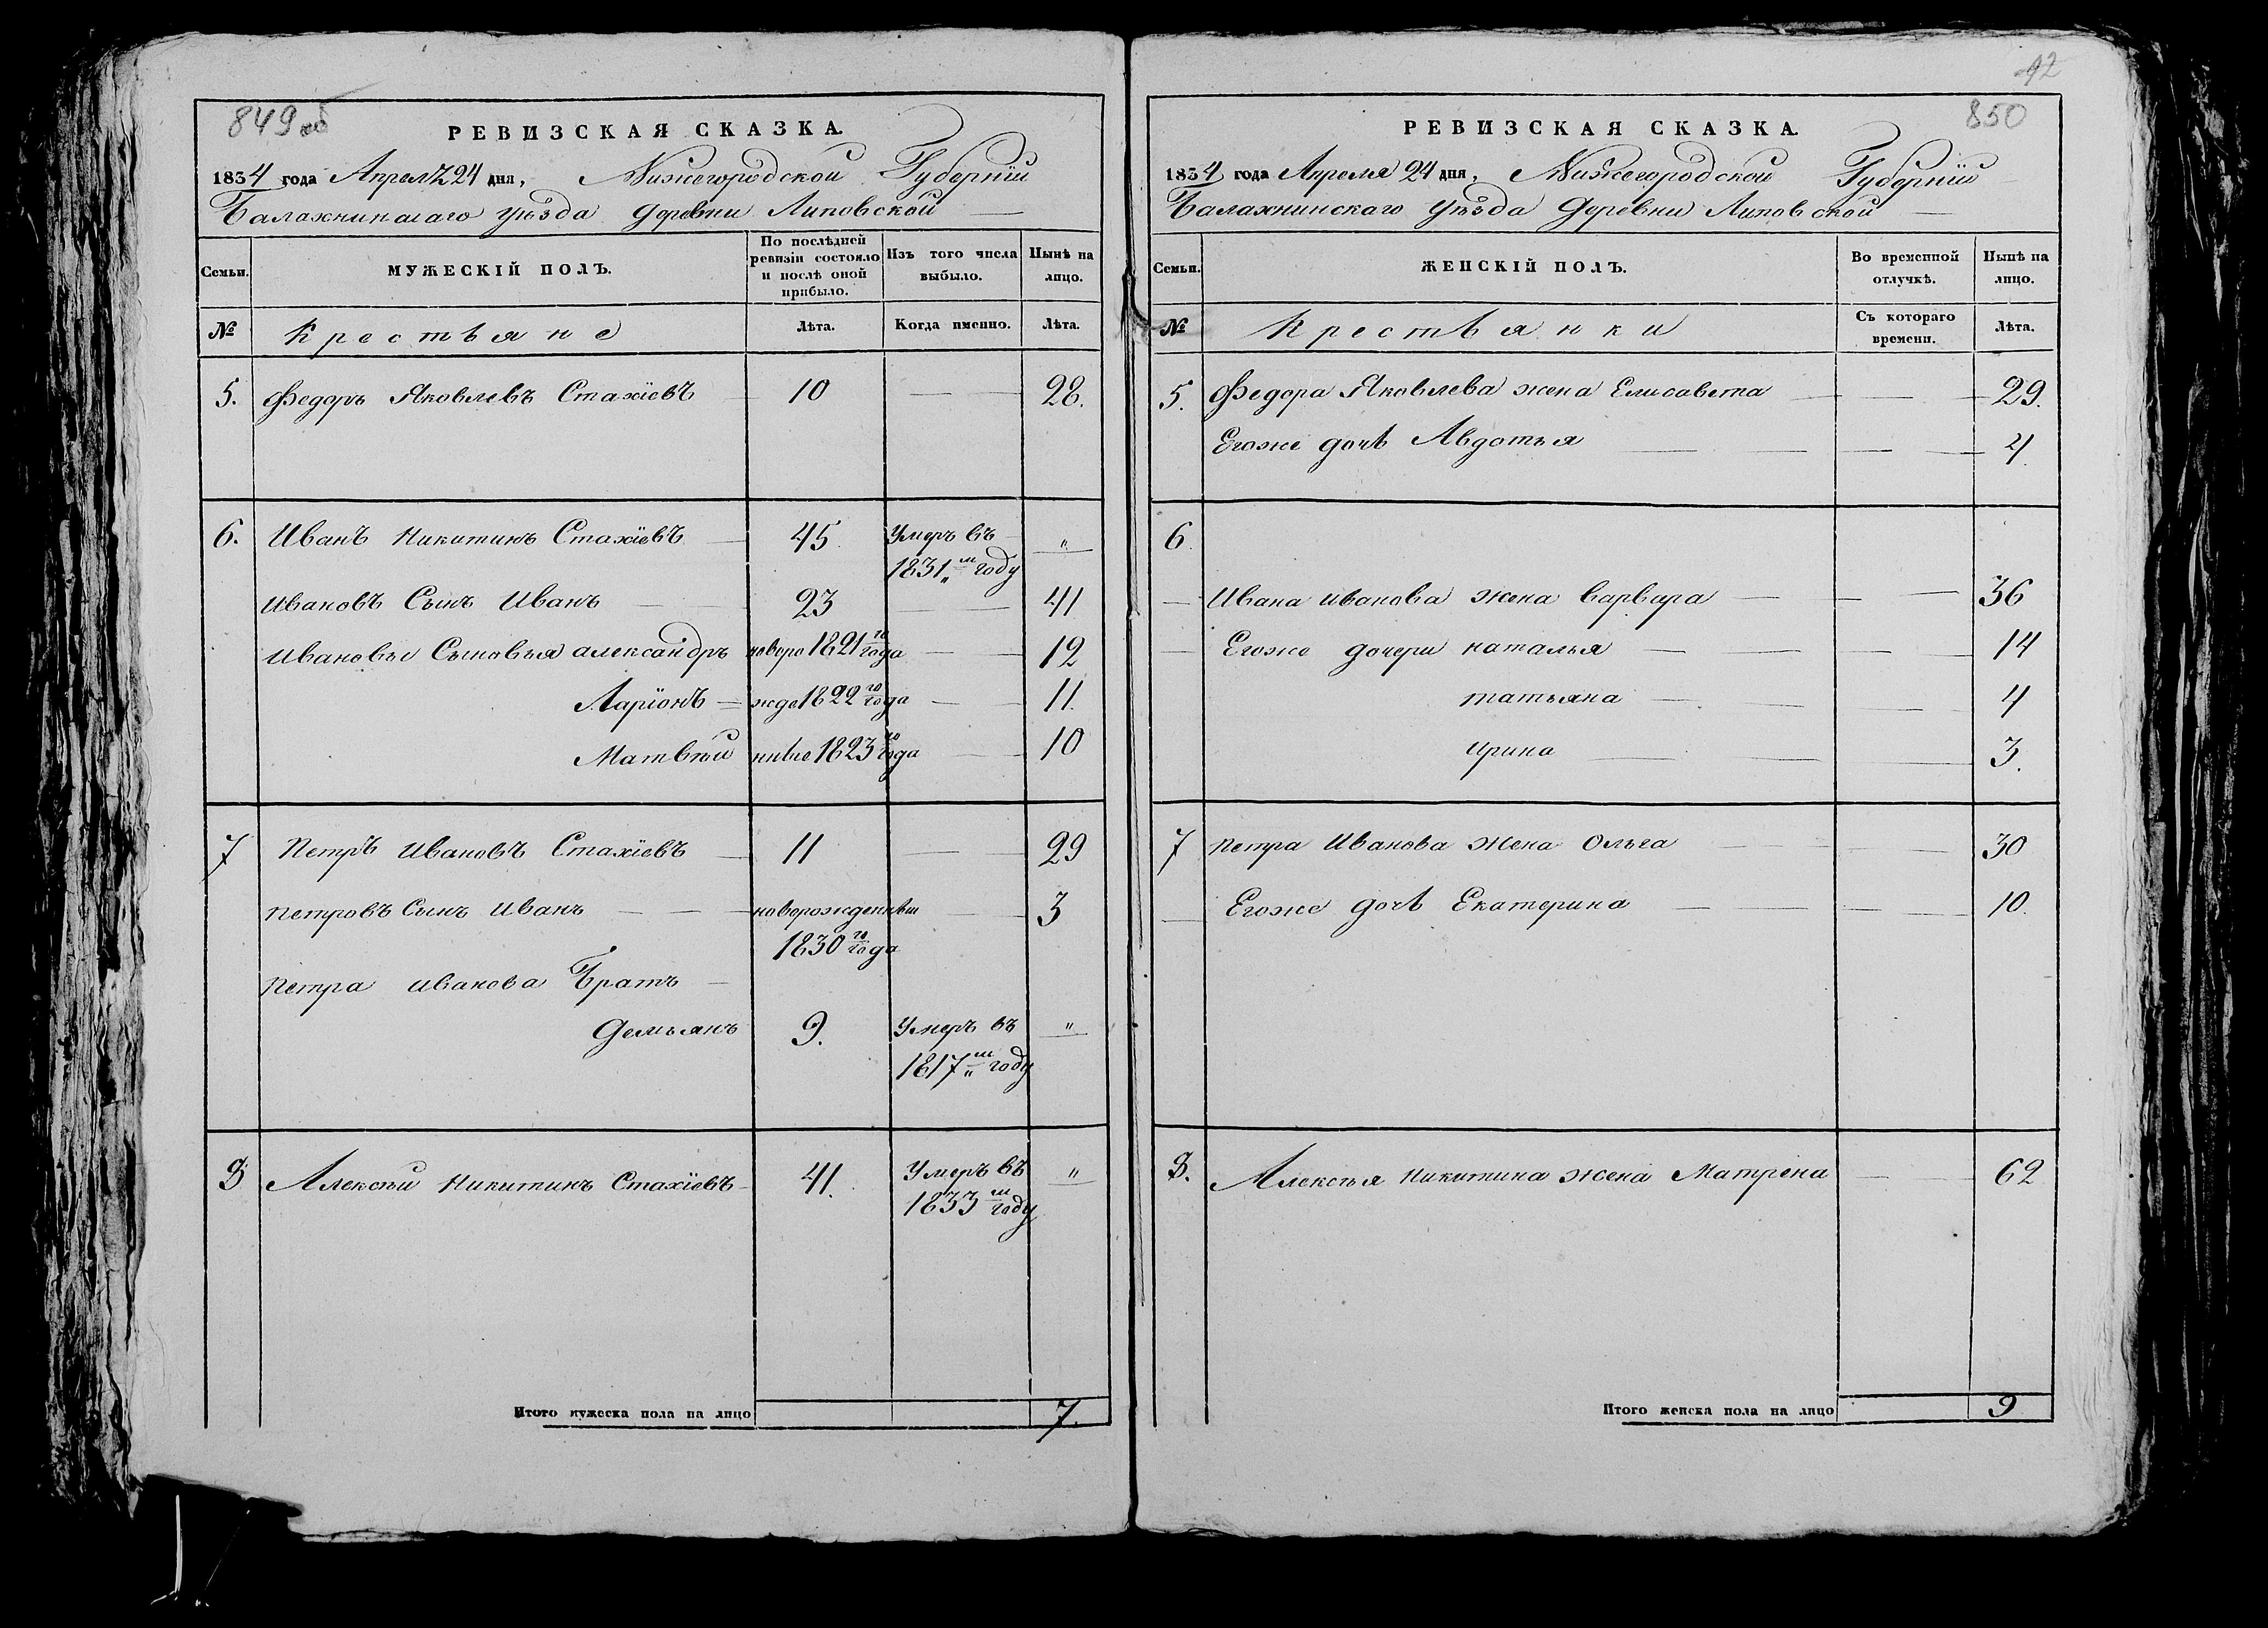 849 об
РЕВИЗСКАЯ СКАЗКА.
1834 года Апреля 24 дня, Нижегородской Губернїи
Балахнинскаго уѣзда деревни Липовской
Семьи. МУЖЕСКІЙ ПОЛЪ. По послѣдней ревизіи состояло и послѣ оной прибыло. Изъ того числа выбыло. Нынѣ на лицо.
№ Крестьяне Лѣта. Когда именно. Лѣта.
5. Федоръ Яковлевъ Стахїевъ 10 28.
6. Иванъ Никитинъ Стахїевъ 45 Умеръ въ 1831м году "
Ивановъ Сынъ Иванъ 23 41
Ивановы Сыновья александръ новоро 1821го года 12
Ларїонъ жде 1822го года 11.
Матвѣй нные 1823го года 10
7 Петръ Ивановъ Стахїевъ 11 29
Петровъ Сынъ Иванъ новорожденный 3
1830го года
Петра иванова Братъ
Демьянъ 9. Умеръ въ "
1817м году
8 Алексѣй Никитинъ Стахїевъ 41. Умеръ въ "
1833м году
Итого мужеска пола на лицо 7.
42
850
РЕВИЗСКАЯ СКАЗКА.
1834 года Апреля 24 дня, Нижегородской Губернїи
Балахнинскаго уѣзда Деревни Липовской
Семьи. ЖЕНСКІЙ ПОЛЪ. Во временной отлучкѣ. Нынѣ на лицо.
№ Крестьянки Съ котораго времени. Лѣта.
5. Федора Яковлева жена Елисавета 29.
Егоже дочь Авдотья 4
6.
Ивана иванова жена варвара 36
Егоже дочери наталья 14
татьяна 4
ирина 3.
7 Петра Иванова Жена Ольга 30
Егоже дочь Екатерина 10.
8. Алексѣя Никитина жена Матрена 62
Итого женска пола на лицо 9